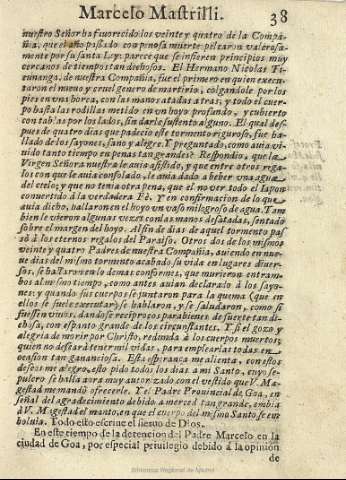 Marcelo Mastrilli.
38
nuestro Señor ha fauorecido los veinte y quatro de la Compa-
ñia, que el año passado con penosa muerte pelearon valerosa-
mente por su santa Ley: parece que se infieren principios muy
cercanos de tiempos tan dichosos. El Hermano Nicolas
de nuestra Compañia, fue el primero en quien execu-
taron el nueuo y cruel genero de martirio, colgandole por los
pies en vna horca, con las manos atadas atras; y todo el cuer-
po hasta las rodillas metido en vn hoyo profundo, y cubierto
con tablas por los lados, sin darle sustento alguno. El qual des-
pues de quatro dias que padecio este tormento riguroso, fue ha-
llado de los sayones, sano y alegre. Y preguntado, como auia vi-
uido tanto tiempo en penas tan grandes? Respondio, que la
Virgen Señora nuestra le auia assistido, y que entre otros rega-
los con que le auia consolado, le auia dado a beber vna agua
del cielo; y que no tenia otra pena, que el no ver todo el Iapon
conuertido à la verdadera Fè. Y en confirmacion de lo que
auia dicho, hallaron en el hoyo vn vaso milagroso de agua. Tam
bien le vieron algunas vezes con las manos desatadas, sentado
sobre el margen del hoyo. Al fin de dias de aquel tormento pas
sò à los eternos regalos del Paraiso. Otros dos de los mismos
veinte y quatro Padres de nuestra Compañia, auiendo en nue-
ue dias del mismo tormento acabado su vida en lugares diuer-
sos, se hallaron en lo demas conformes, que murieron entram-
bos al mismo tiempo, como antes auian declarado à los sayo-
nes: y quando sus cuerpos se juntaron para la quema (que en
ellos se suele executar) se hablaron, y se saludaron, como si
fuessen viuos, dandose reciprocos parabienes de suerte tan di-
chosa, con espanto grande de los circunstantes. Y si el gozo y
alegria de morir por Christo, redunda à los cuerpos muertos;
quien no desearà tener mil vidas, para emplearlas todas en
ocasion tan gananciosa. Esta esperança me alienta, con estos
deseos me alegro, esto pido todos los dias a mi Santo, cuyo se-
pulcro se halla aora muy autorizado con el vestido que V. Ma-
gestad me mandò ofrecerle. Y el Padre Prouincial de Goa, en
señal del agradecimiento debido a merced tan grande, embia
à V. Magestad el manto, en que el cuerpo del mismo Santo se en-
boluia. Todo esto escriue el sieruo de Dios.
En este tiempo de la detencion del Padre Marcelo en la
ciudad de Goa, por especial priuilegio debido à la opinion
de
Biblioteca Regional de Madrid